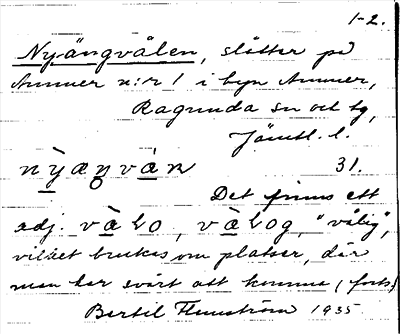 1-2.
Nyängvålen, slåtter på
Ammer n:r 1 i byn Ammer,
Ragunda sn och tg,
Jämtl. l.
nỳæŋvàɴ 31.
Det finns ett
adj. vàƖo, vàƖog, "vålig",
vilket brukas om platser, där
man har svårt att komma (forts.)
Bertil Flemström 1935